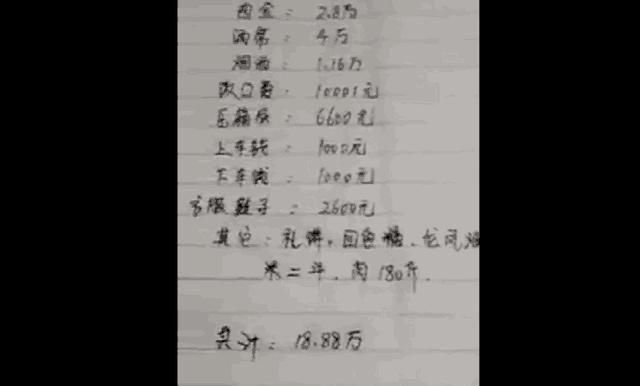 酉金：2.8万
酒席：4万
烟酒：1.16万
改口费：10001元
压箱底：6600元
上车钱：1000元
下车钱：1000元
衣服鞋子：2600元
其它：礼饼、回色糖、龙凤
米二斗、肉180斤.
共计：18.88万